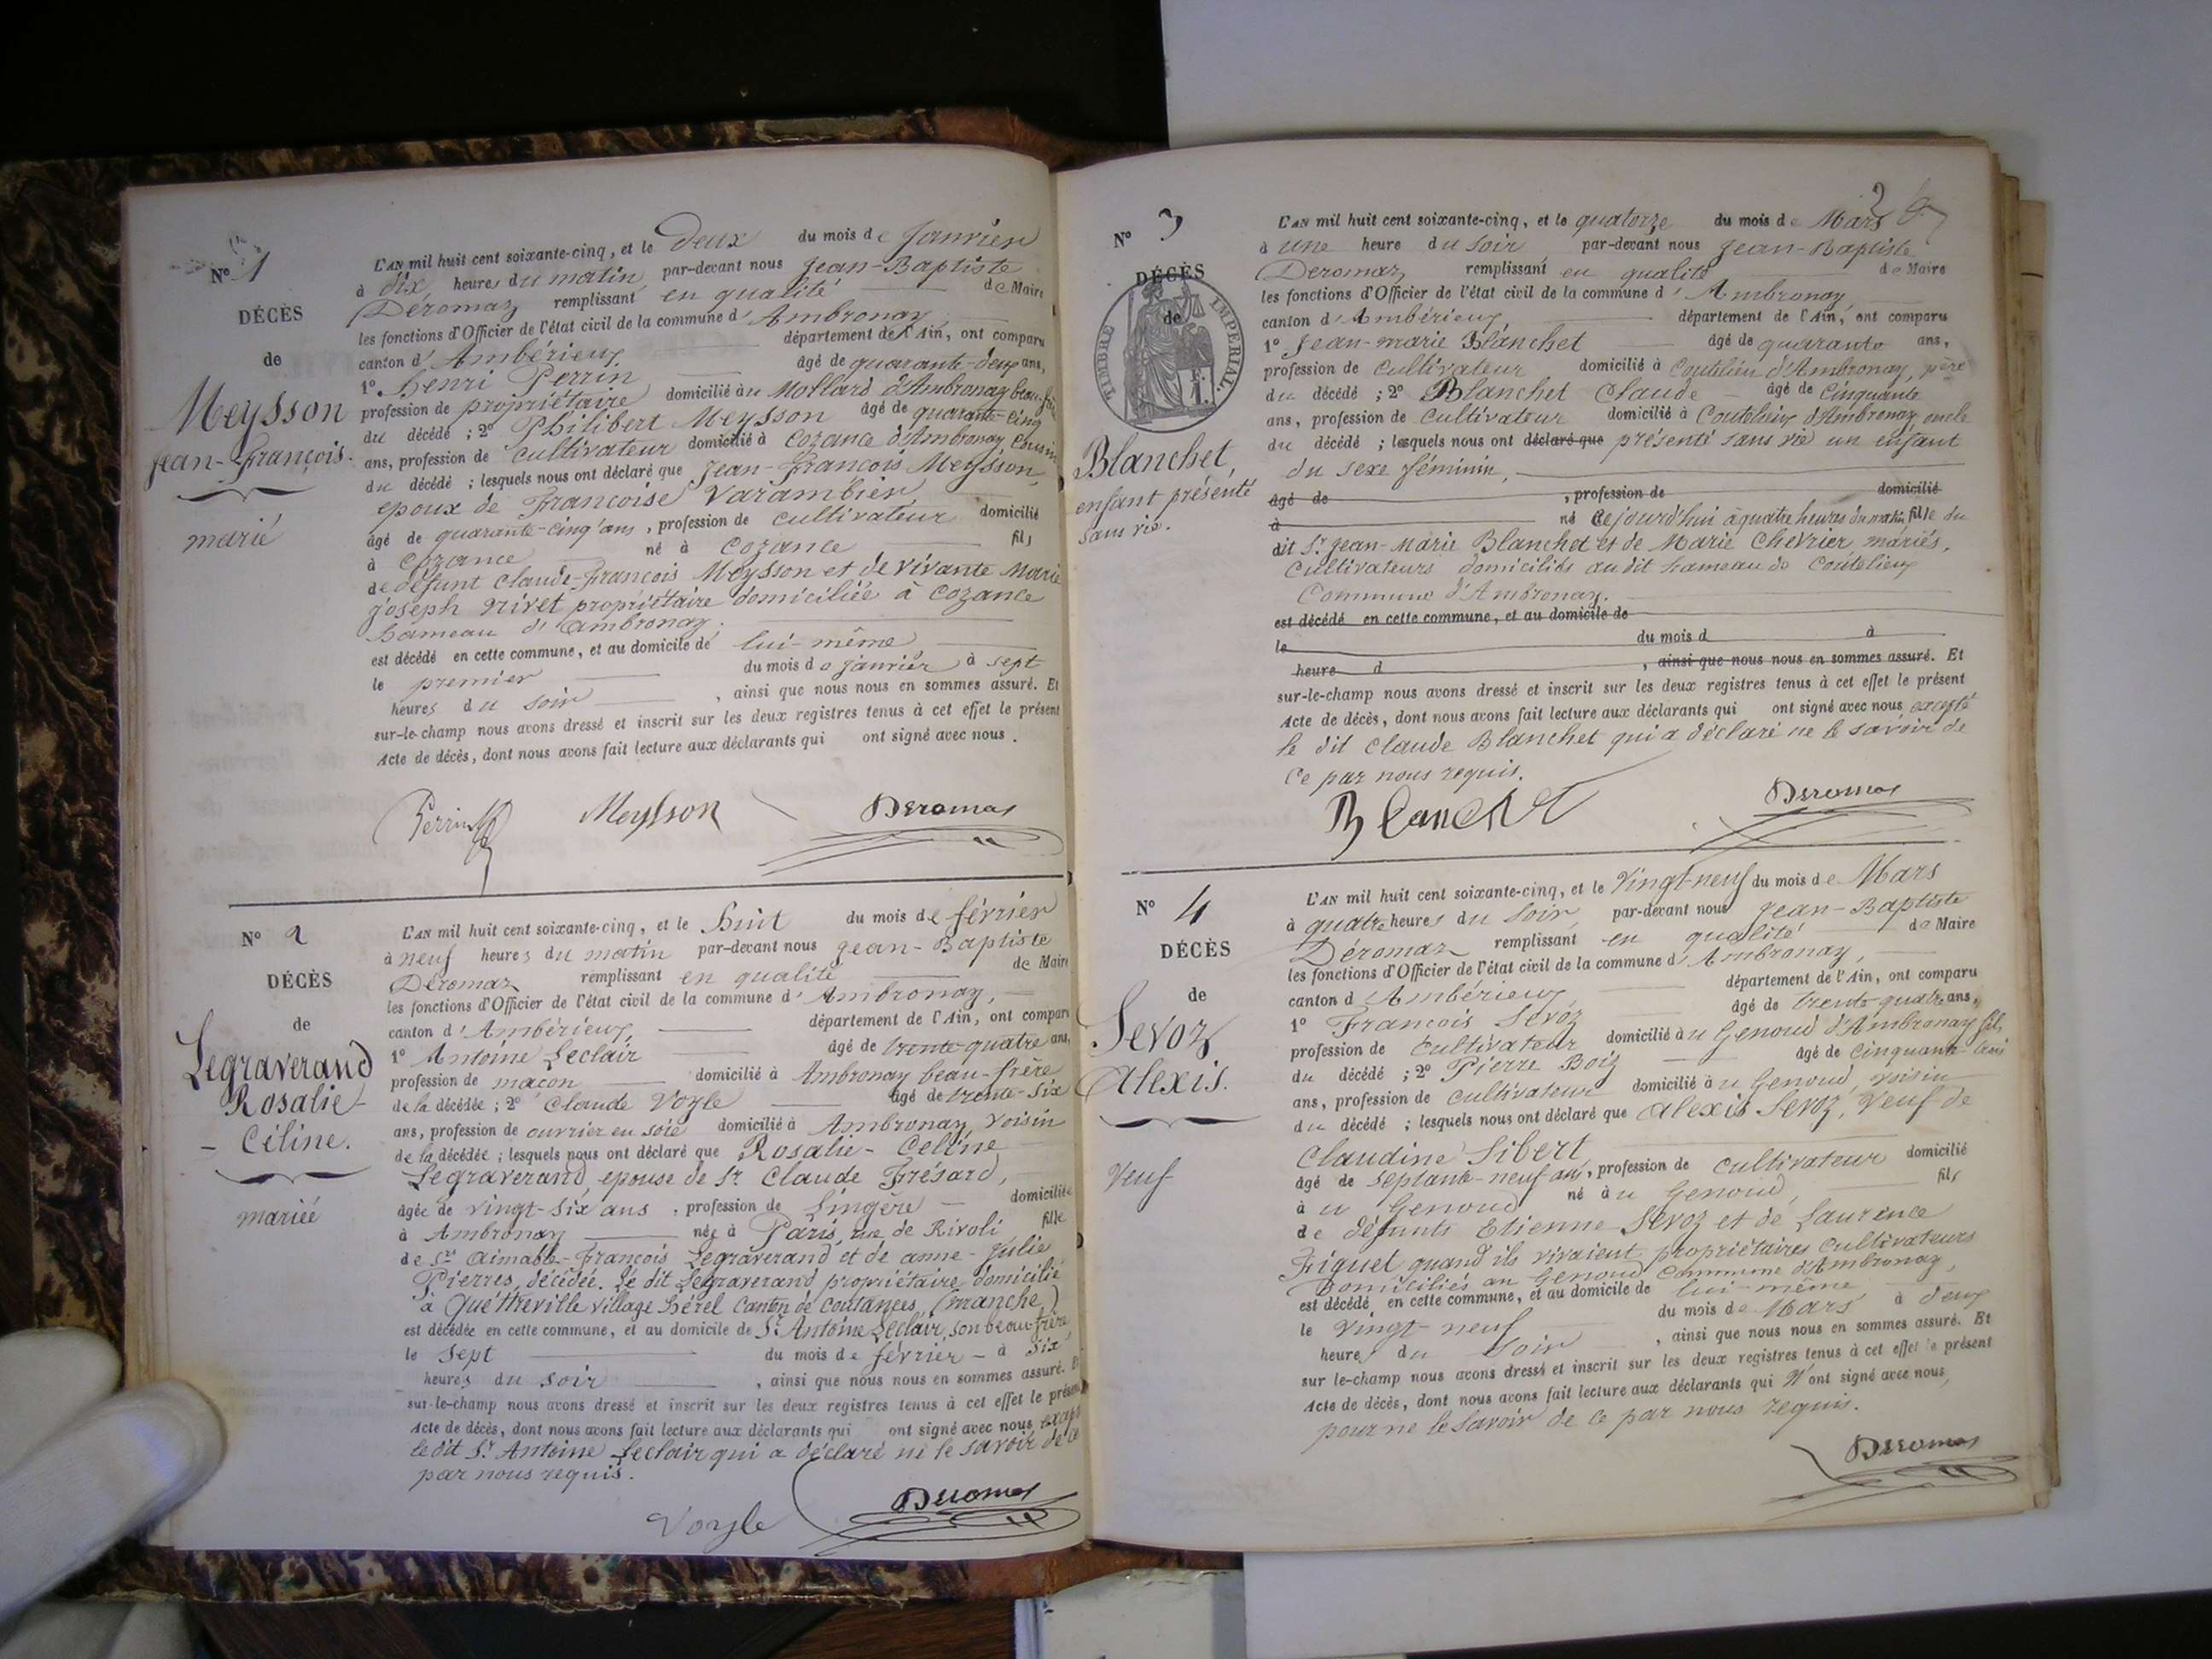 N° 1
DÉCÈS
de
Meysson
Jean-François.
marié
L'AN mil huit cent soixante-cinq, et le deux du mois de Janvier
à dix heures du matin par-devant nous Jean-Baptiste
Déromaz remplissant en qualité de Maire
les fonctions d'Officier de l'état civil de la commune d'Ambronay,
canton d'Ambérieux département de l'Ain, ont comparu
1° Henri Perrin âgé de quarante-deux ans,
profession de propriétaire domicilié au Mollard d'Ambronay beau-frère
du décédé ; 2° Philibert Meysson âgé de quarante-cinq
ans, profession de cultivateur domicilié à Cozance d'Ambronay Cousin
du décédé ; lesquels nous ont déclaré que Jean-François Meysson,
epoux de Françoise Varambier,
âgé de quarante-cinq ans, profession de cultivateur domicilié
à Cozance né à Cozance fils
de défunt Claude-François Meysson et de vivante Marie
Joseph Privet propriétaire domiciliée à Cozance
hameau d'Ambronay.
est décédé en cette commune, et au domicile de lui-même
le premier du mois de Janvier à sept
heures du soir, ainsi que nous nous en sommes assuré. Et
sur-le-champ nous avons dressé et inscrit sur les deux registres tenus à cet effet le présent
Acte de décès, dont nous avons fait lecture aux déclarants qui ont signé avec nous.
Perrin Meysson Deromas
N° 2
DÉCÈS
de
Legraverand
Rosalie-
- Céline.
mariée
L'AN mil huit cent soixante-cinq, et le huit du mois de février
à neuf heures du matin par-devant nous Jean-Baptiste
Déromaz remplissant en qualité de Maire
les fonctions d'Officier de l'état civil de la commune d'Ambronay,
canton d'Ambérieux, département de l'Ain, ont comparu
1° Antoine Leclair âgé de trente-quatre ans,
profession de maçon domicilié à Ambronay beau-frère
de la décédée ; 2° Claude Voyle âgé de trente-six
ans, profession de ouvrier en soie domicilié à Ambronay, voisin
de la décédée ; lesquels nous ont déclaré que Rosalie-Céline
Legraverand, epouse de Sr Claude Frésard,
âgée de vingt-six ans, profession de Lingère domiciliée
à Ambronay née à Paris, rue de Rivoli fille
de Sr Aimable-François Legraverand et de anne-Julie
Pierres, décédée. Le dit Legraverand propriétaire domicilié
à Quéttreville village Hérel Canton de Coutances, (manche)
est décédée en cette commune, et au domicile de Sr Antoine Leclair, son beau-frère,
le sept du mois de février - à six
heures du soir, ainsi que nous nous en sommes assuré. Et
sur-le-champ nous avons dressé et inscrit sur les deux registres tenus à cet effet le présent
Acte de décès, dont nous avons fait lecture aux déclarants qui ont signé avec nous, excepté
le dit Sr Antoine Leclair qui a déclaré ne le savoir de ce
par nous requis.
Voyle Deromas
2
N° 3
DÉCÈS
de
TIMBRE IMPÉRIAL.
Blanchet,
enfant présenté
sans vie.
L'AN mil huit cent soixante-cinq, et le quatorze du mois de Mars
à une heure du soir par-devant nous Jean-Baptiste
Deromaz remplissant en qualité de Maire
les fonctions d'Officier de l'état civil de la commune d'Ambronay,
canton d'Ambérieux département de l'Ain, ont comparu
1° Jean-marie Blanchet âgé de quarante ans,
profession de Cultivateur domicilié à Coutelieu d'Ambronay, père
du décédé ; 2° Blanchet Claude âgé de Cinquante
ans, profession de Cultivateur domicilié à Coutelieux d'Ambronay, oncle
du décédé ; lesquels nous ont déclaré que présenté sans vie un enfant
du sexe féminin,
âgé de , profession de domicilié
à né Cejourd'hui à quatre heures du matin fille du
dit Sr Jean-Marie Blanchet et de Marie Chevrier mariés,
Cultivateurs domiciliés au dit hameau de Coutelieux
Commune d'Ambronay.
est décédé en cette commune, et au domicile de
le du mois d à
heure d , ainsi que nous nous en sommes assuré. Et
sur-le-champ nous avons dressé et inscrit sur les deux registres tenus à cet effet le présent
Acte de décès, dont nous avons fait lecture aux déclarants qui ont signé avec nous excepté
le dit Claude Blanchet qui a déclaré ne le savoir de
Ce par nous requis.
Blanchet Deromas
N° 4
DÉCÈS
de
Sevoz
Alexis.
Veuf
L'AN mil huit cent soixante-cinq, et le vingt-neuf du mois de Mars
à quatre heures du soir par-devant nous Jean-Baptiste
Déromaz remplissant en qualité de Maire
les fonctions d'Officier de l'état civil de la commune d'Ambronay,
canton d'Ambérieux, département de l'Ain, ont comparu
1° François Sevoz âgé de trente-quatre ans,
profession de Cultivateur domicilié au Genoud d'Ambronay fils
du décédé ; 2° Pierre Boiz âgé de Cinquante-trois
ans, profession de Cultivateur domicilié au Genoud, voisin
du décédé ; lesquels nous ont déclaré que Alexis Sevoz, Veuf de
Claudine Sibert
âgé de septante-neuf ans, profession de Cultivateur domicilié
au Genoud né au Genoud, fils
de défunts Etienne Sevoz et de Laurence
Figuet quand ils vivaient propriétaires Cultivateurs
Domiciliés au Genoud Commune d'Ambronay,
est décédé en cette commune, et au domicile de lui-même
le vingt-neuf du mois de Mars à deux
heures du soir, ainsi que nous nous en sommes assuré. Et
sur le-champ nous avons dressé et inscrit sur les deux registres tenus à cet effet le présent
Acte de décès, dont nous avons fait lecture aux déclarants qui N'ont signé avec nous,
pour ne le savoir de ce par nous requis.
Deromas